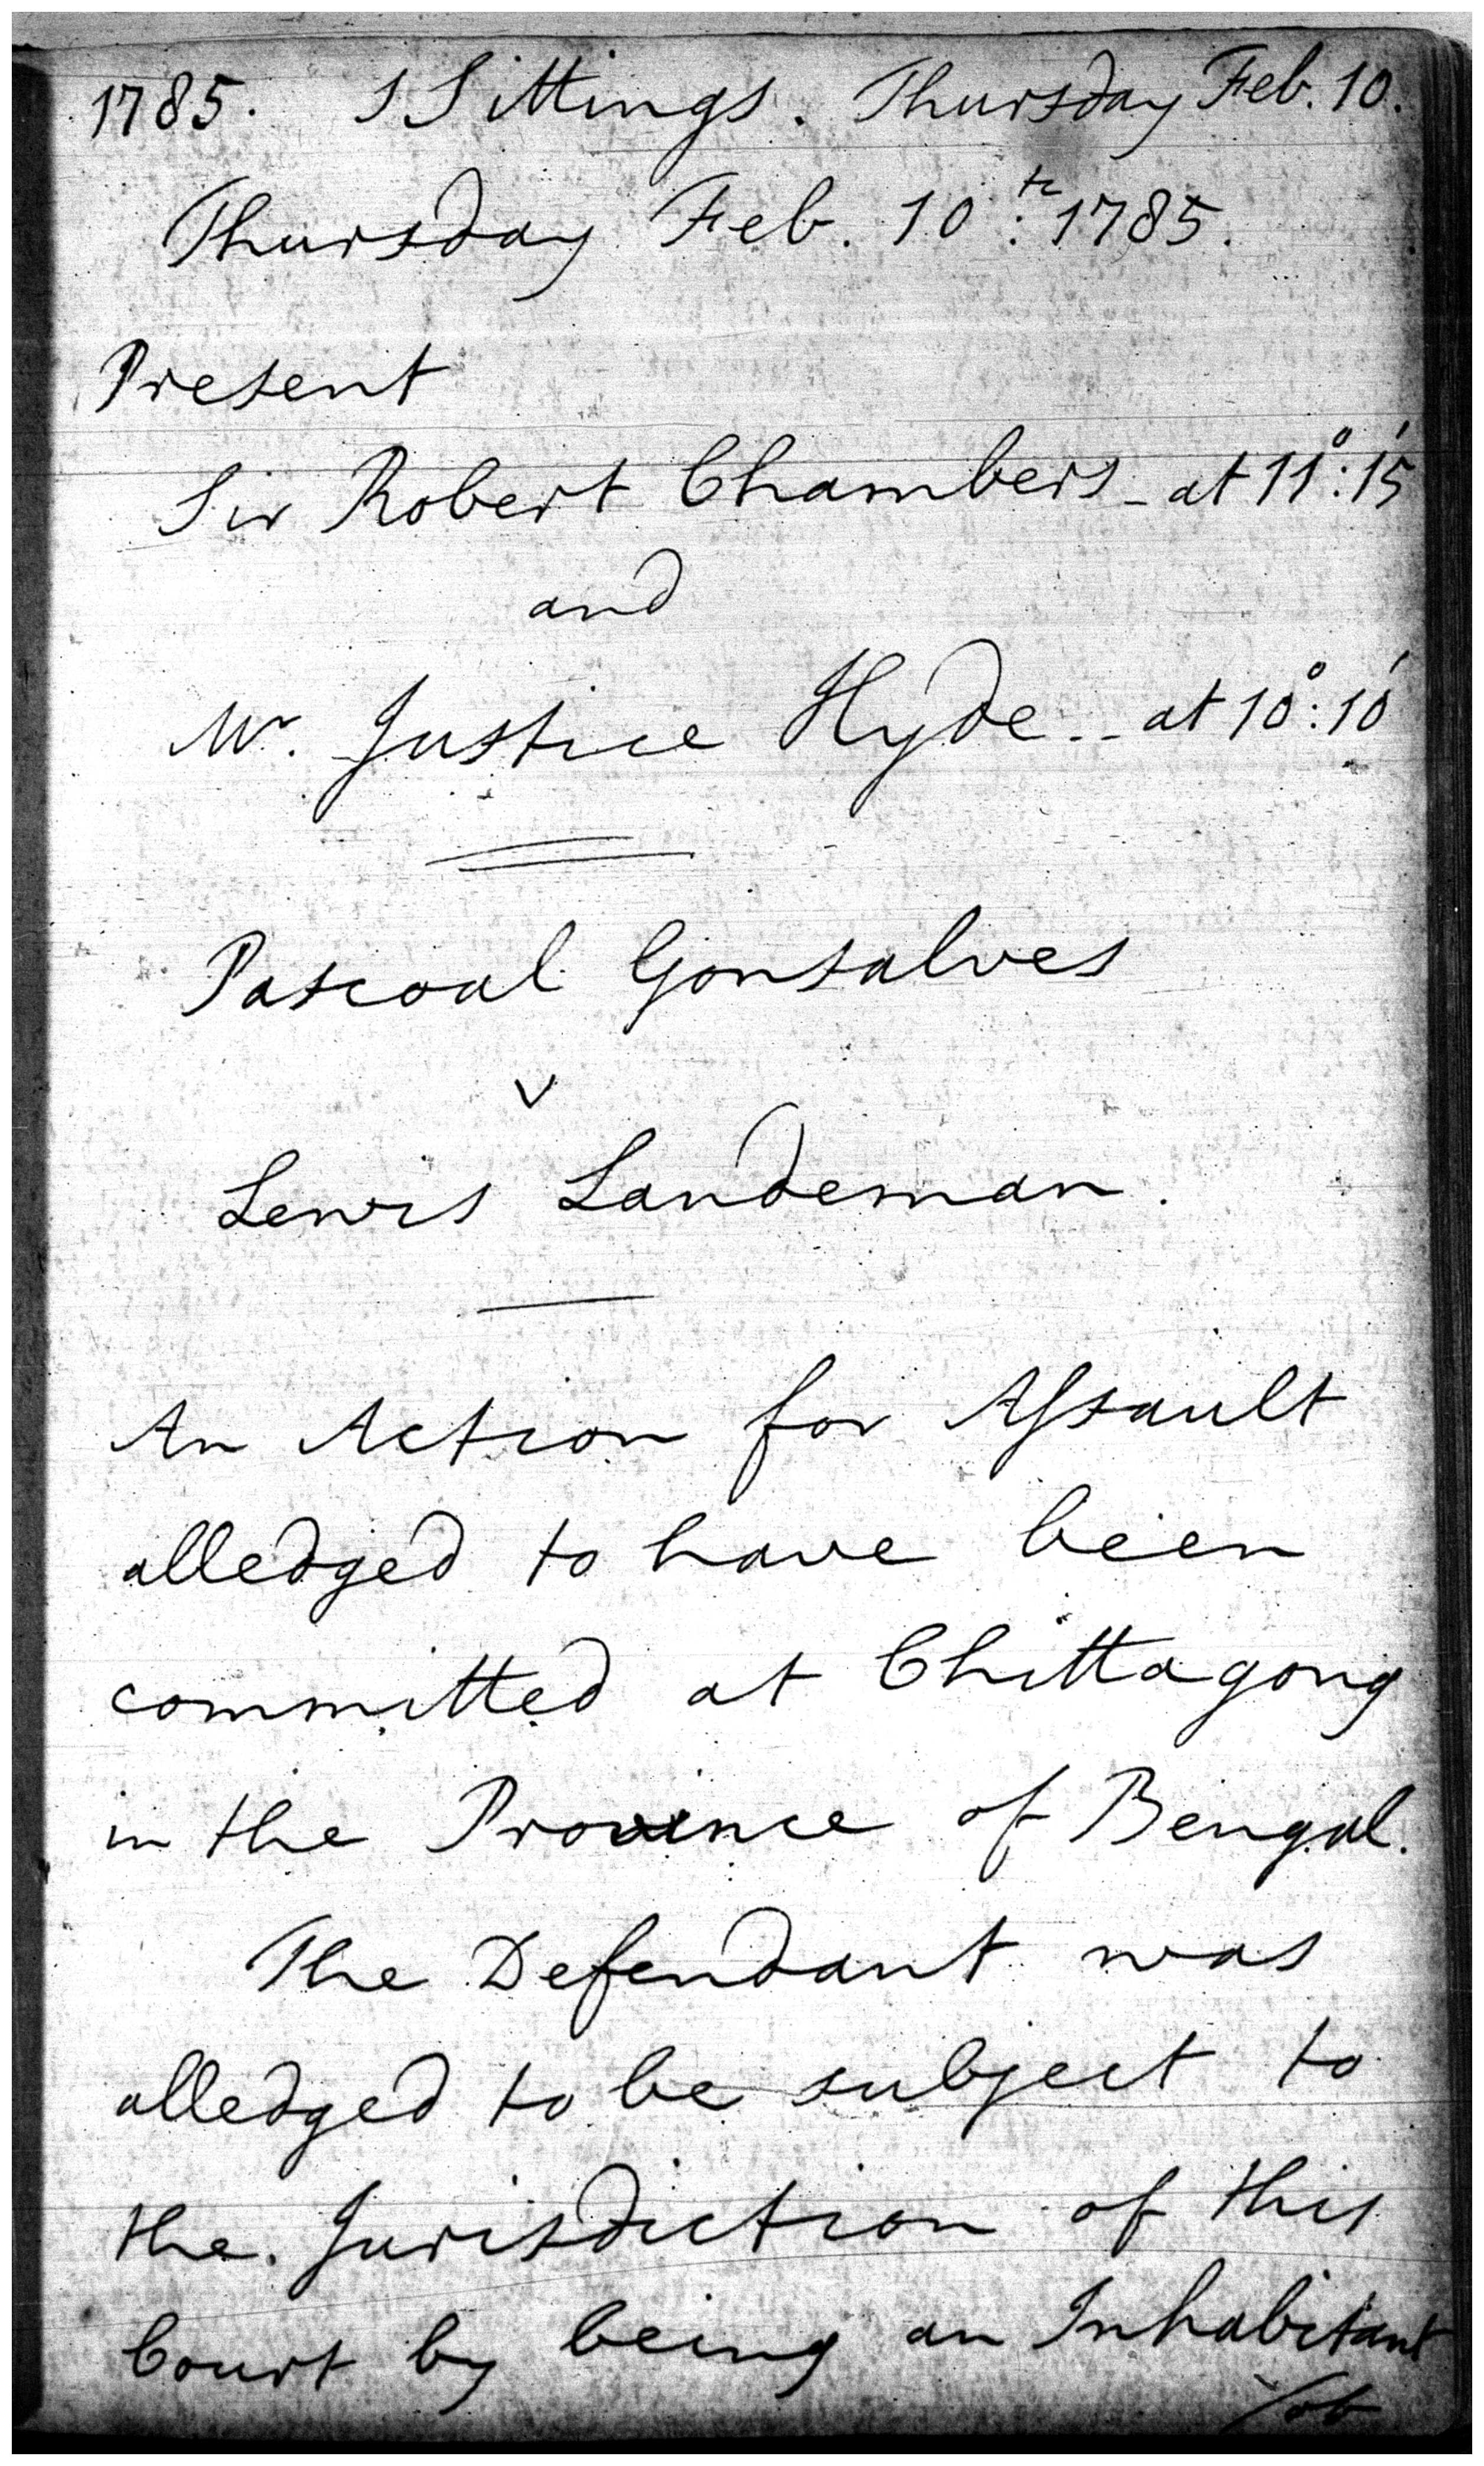 1785. 1 Sittings. Thursday Feb. 10.
Thursday Feb. 10.th 1785.
Present
Sir Robert Chambers - at 11°: 15'
and
Mr. Justice Hyde -- at 10°: 10'
Pascoal Gonsalves
v
Lewis Landeman.
An Action for Assault
alledged to have been
committed at Chittagong
in the Province of Bengal.
The Defendant was
alledged to be subject to
the Jurisdiction of this
Court by being an Inhabitant
/of